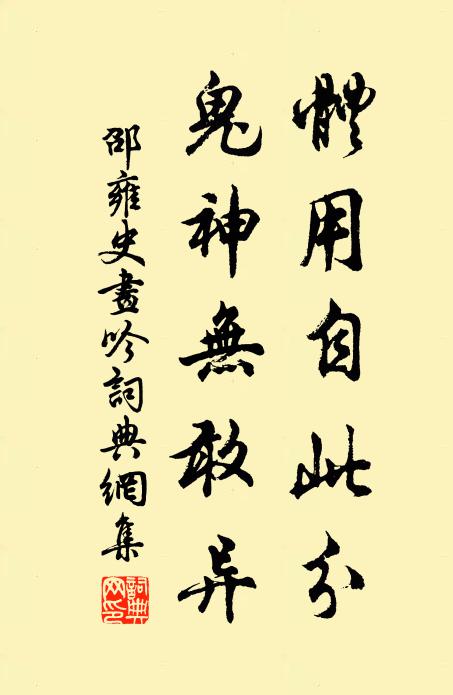 體用自此分
鬼神無敢异
邵雍史畫吟詞典網集
詞典網印